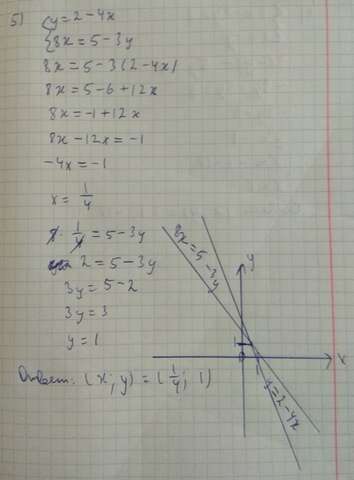 5) { y = 2 - 4x
{ 8x = 5 - 3y
8x = 5 - 3(2 - 4x)
8x = 5 - 6 + 12x
8x = -1 + 12x
8x - 12x = -1
-4x = -1
x = 1/4
8 · 1/4 = 5 - 3y
2 = 5 - 3y
3y = 5 - 2
3y = 3
y = 1
Ответ: (x; y) = (1/4; 1)
8x = 5 - 3y
y
x
1
0
1
y = 2 - 4x